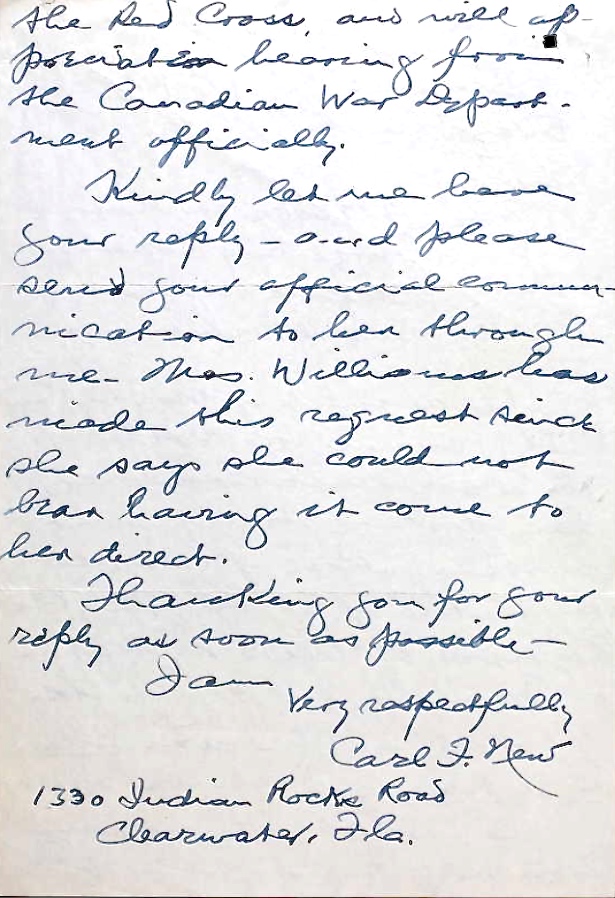 the Red Cross, and will ap-
preciate hearing from
the Canadian War Depart-
ment officially.
Kindly let me have
your reply – and please
send your official commu-
nication to her through
me – Mrs. Williams has
made this request since
she says she could not
bear having it come to
her direct.
Thanking you for your
reply as soon as possible –
I am
Very respectfully
Carl F. New
1330 Indian Rocks Road
Clearwater, Fla.